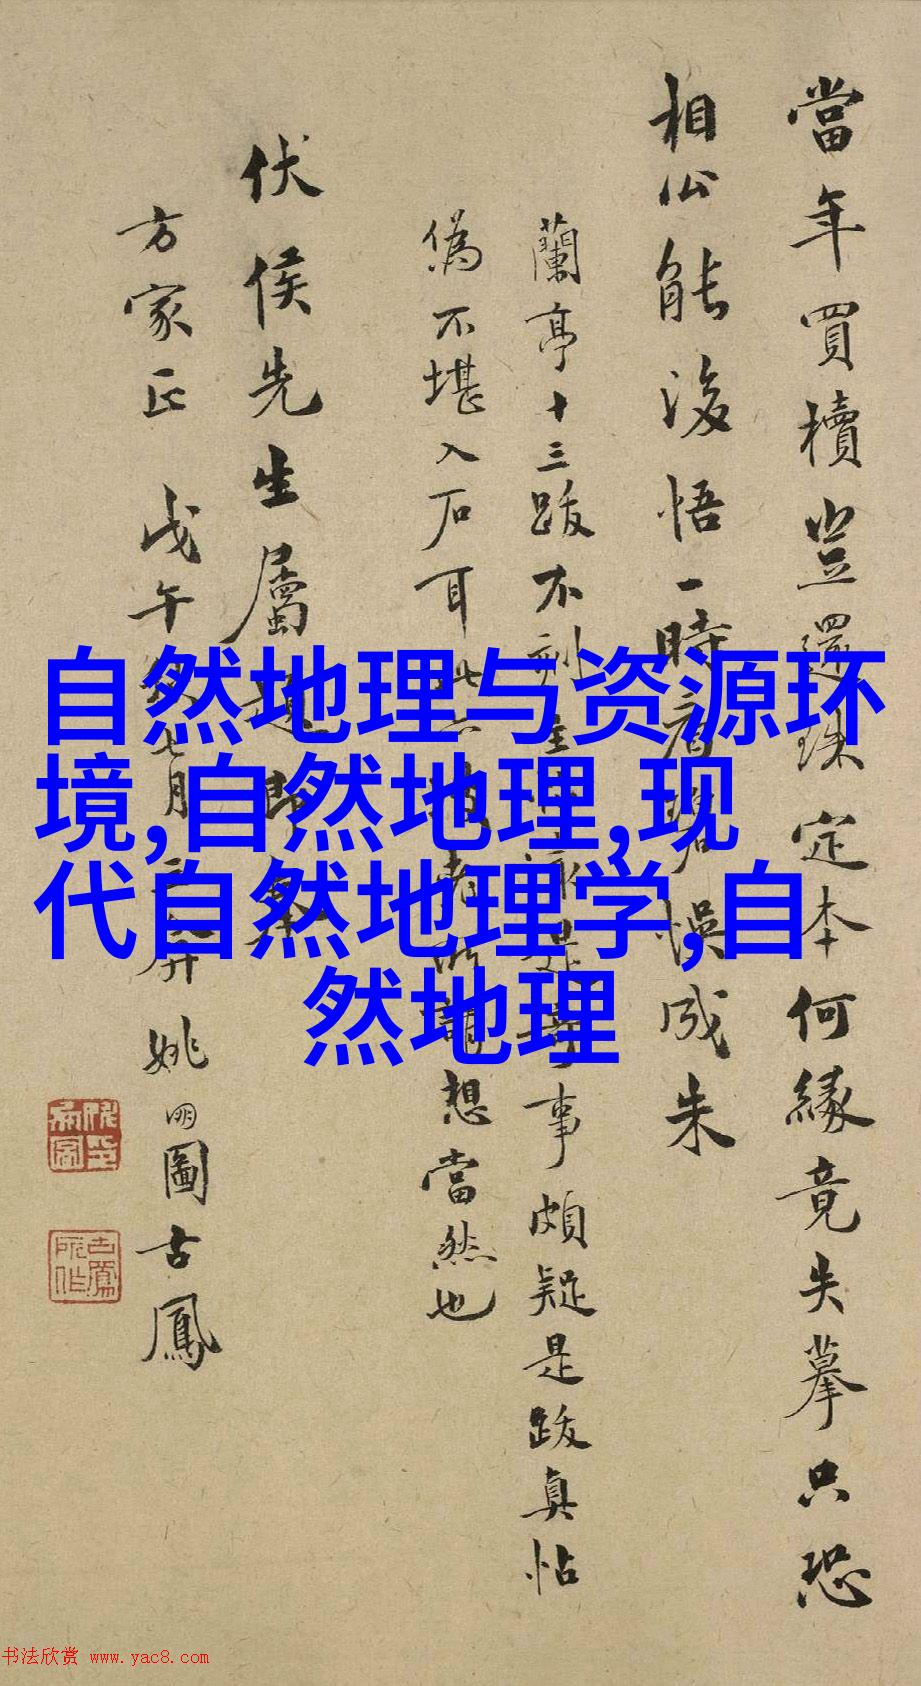 當年買櫝豈還珠定本何緣竟失摹只恐
相公能後悟一時看碧悞成朱
蘭亭十三跋不刻事頗疑是跋真帖
偽不堪入石耳想當然也
伏侯先生屬題即奉
方家正 戊午秋七月 姚明圖古鳳
自然地理与资源环
境,自然地理,现
代自然地理学,自
然地理
书法欣赏 www.yac8.com